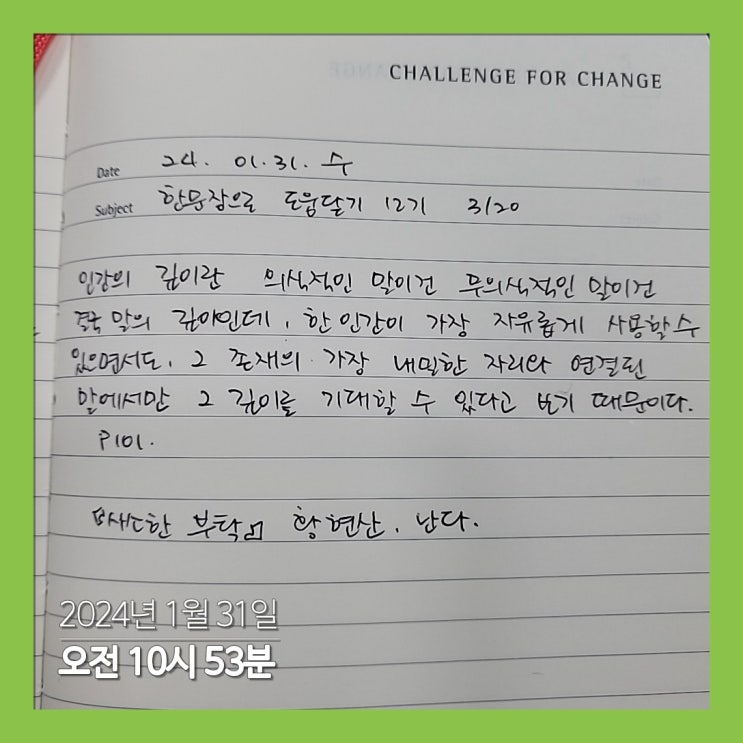 CHALLENGE FOR CHANGE
Date 24. 01. 31. 수
Subject 한문장으로 도움닫기 12기 3/20
인간의 깊이란 의식적인 말이건 무의식적인 말이건
결국 말의 깊이인데, 한 인간이 가장 자유롭게 사용할 수
있으면서도, 그 존재의 가장 내밀한 자리와 연결된
말에서만 그 깊이를 기대할 수 있다고 보기 때문이다.
P101.
사소한 부탁 황현산. 난다.
2024년 1월 31일
오전 10시 53분